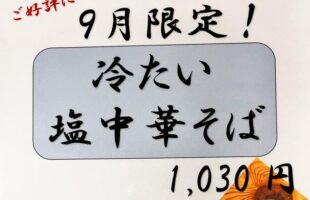 ご好評に
9月限定!
冷たい
塩中華そば
1,030円